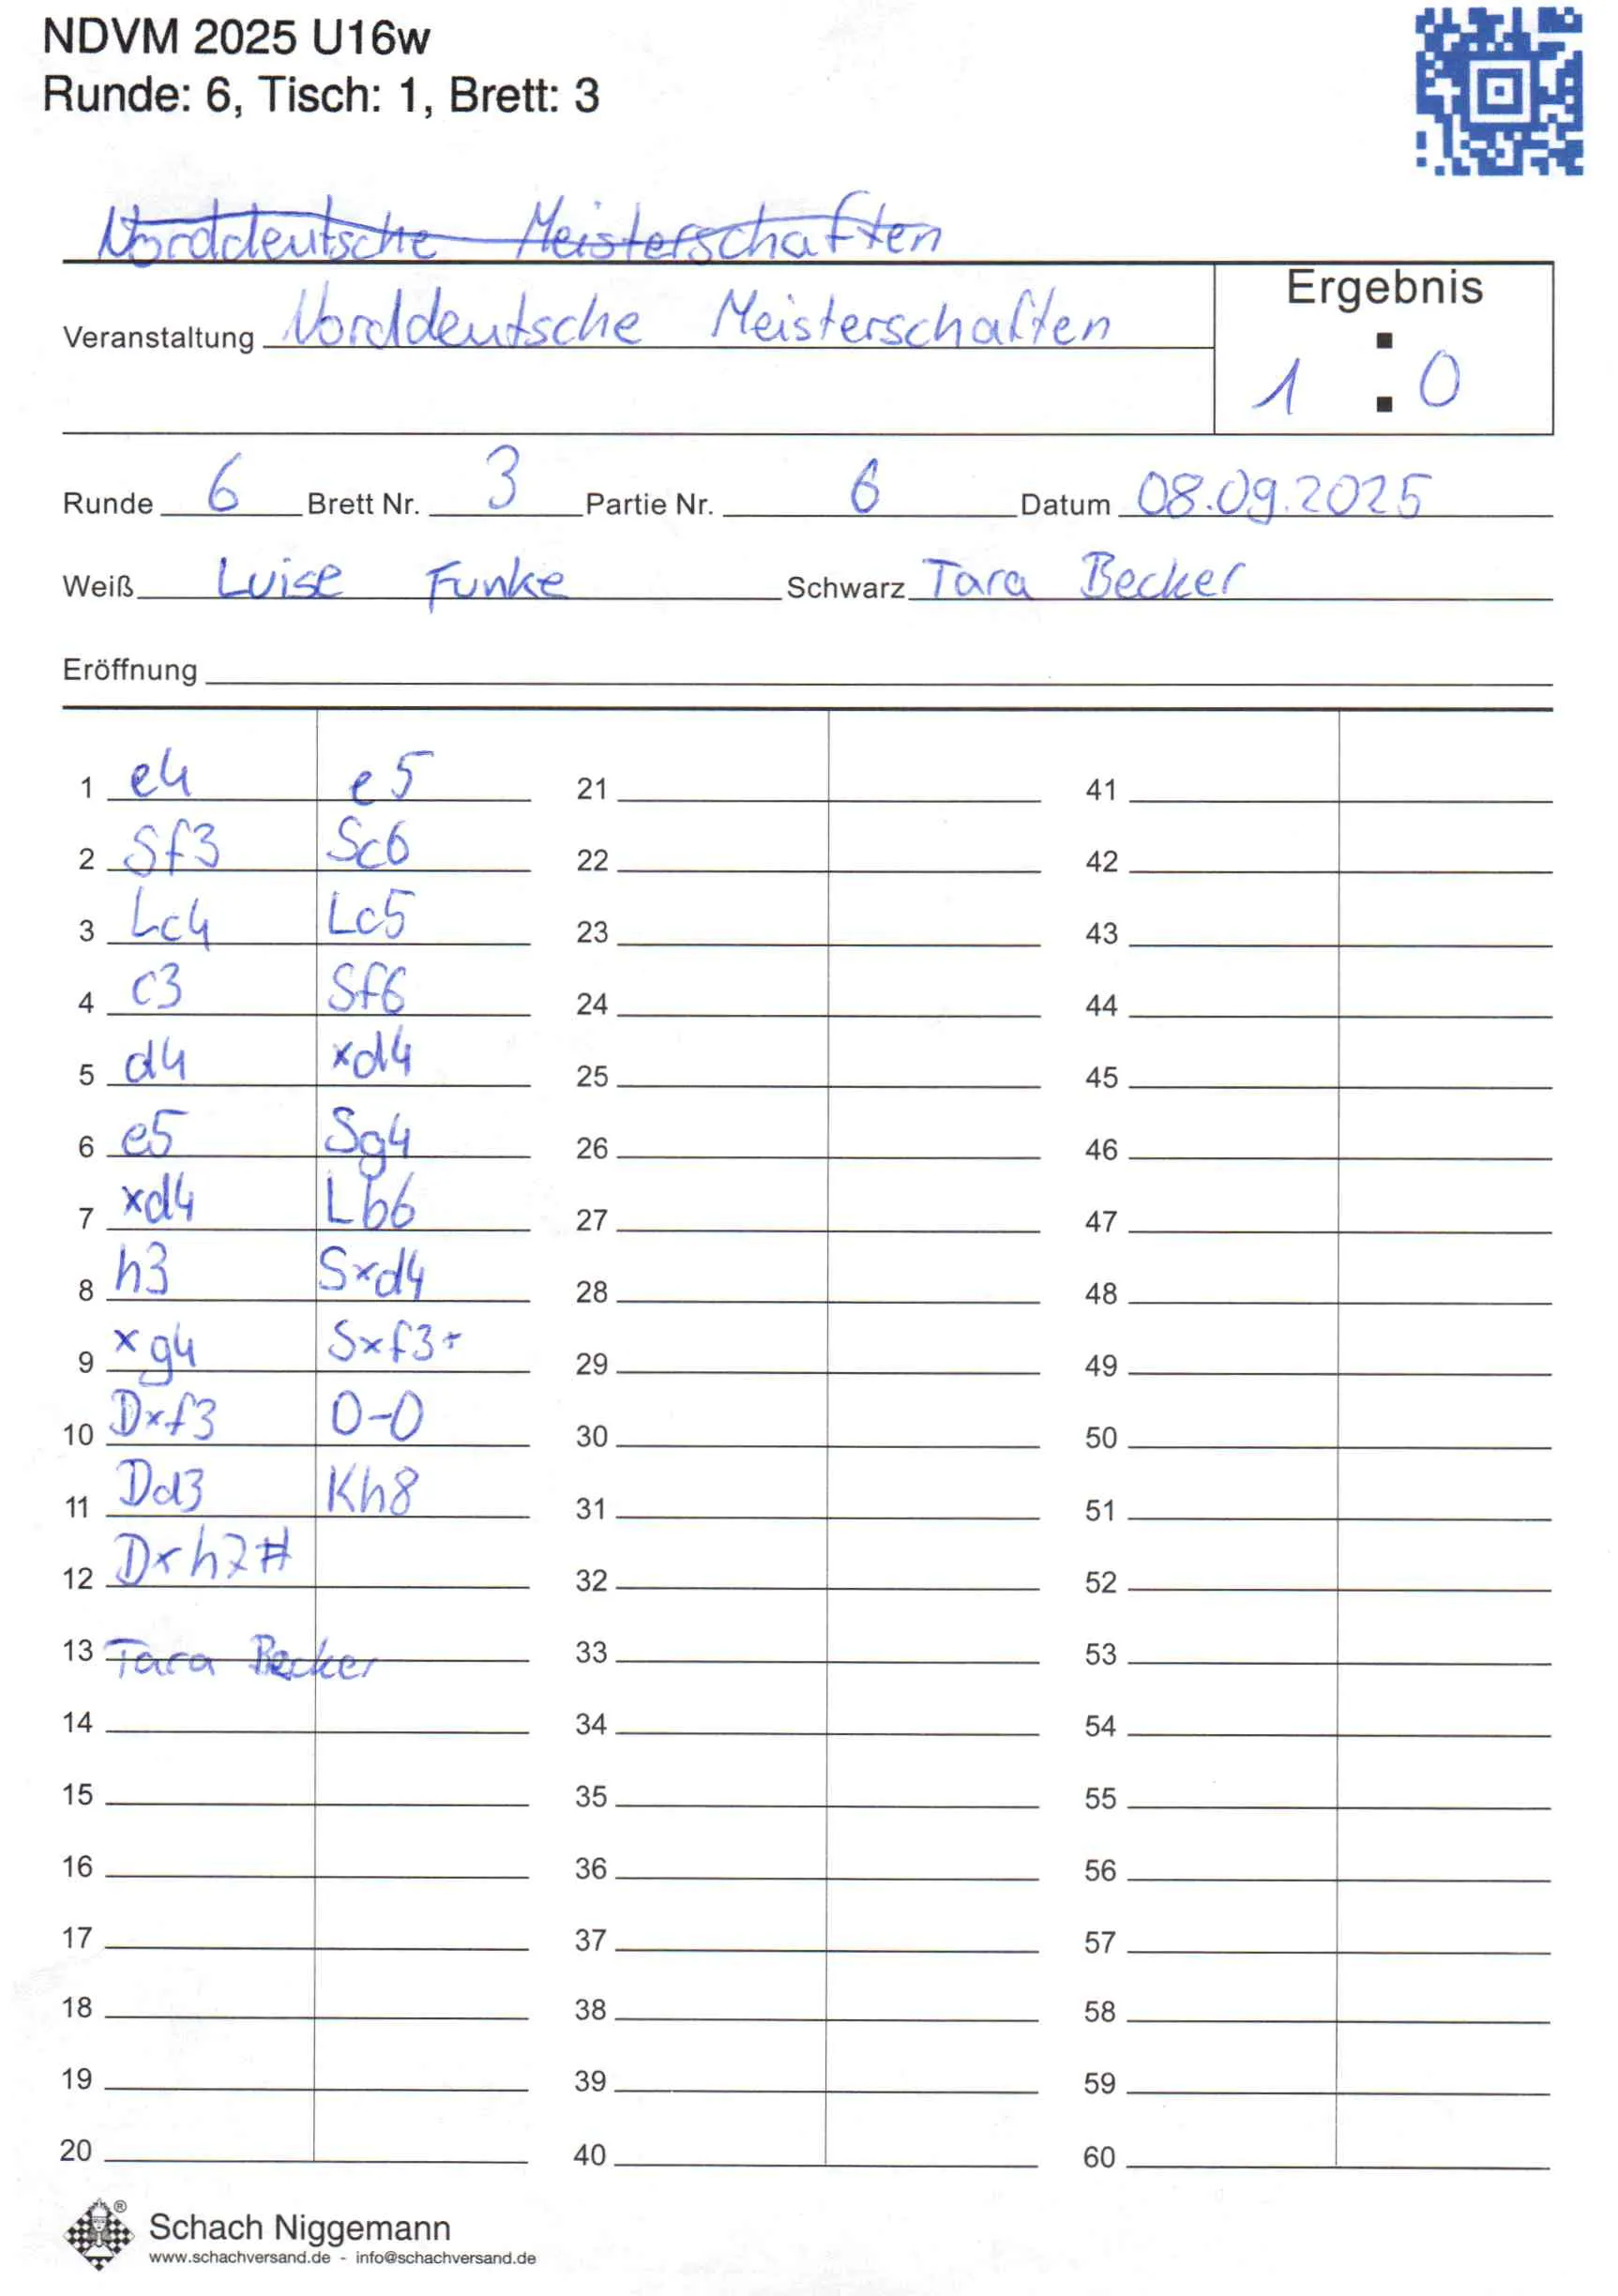 NDVM 2025 U16w
Runde: 6, Tisch: 1, Brett: 3
Norddeutsche Meisterschaften
Ergebnis
Veranstaltung Norddeutsche Meisterschaften
1 : 0
Runde 6 Brett Nr. 3 Partie Nr. 6 Datum 08.09.2025
Weiß Luise Funke Schwarz Tara Becker
Eröffnung
1 e4 e5 21 41
2 Sf3 Sc6 22 42
3 Lc4 Lc5 23 43
4 c3 Sf6 24 44
5 d4 xd4 25 45
6 e5 Sg4 26 46
7 xd4 Lb6 27 47
8 h3 Sxd4 28 48
9 xg4 Sxf3+ 29 49
10 Dxf3 0-0 30 50
11 Dd3 Kh8 31 51
12 Dxh7# 32 52
13 Tara Becker 33 53
14 34 54
15 35 55
16 36 56
17 37 57
18 38 58
19 39 59
20 40 60
®
Schach Niggemann
www.schachversand.de - info@schachversand.de